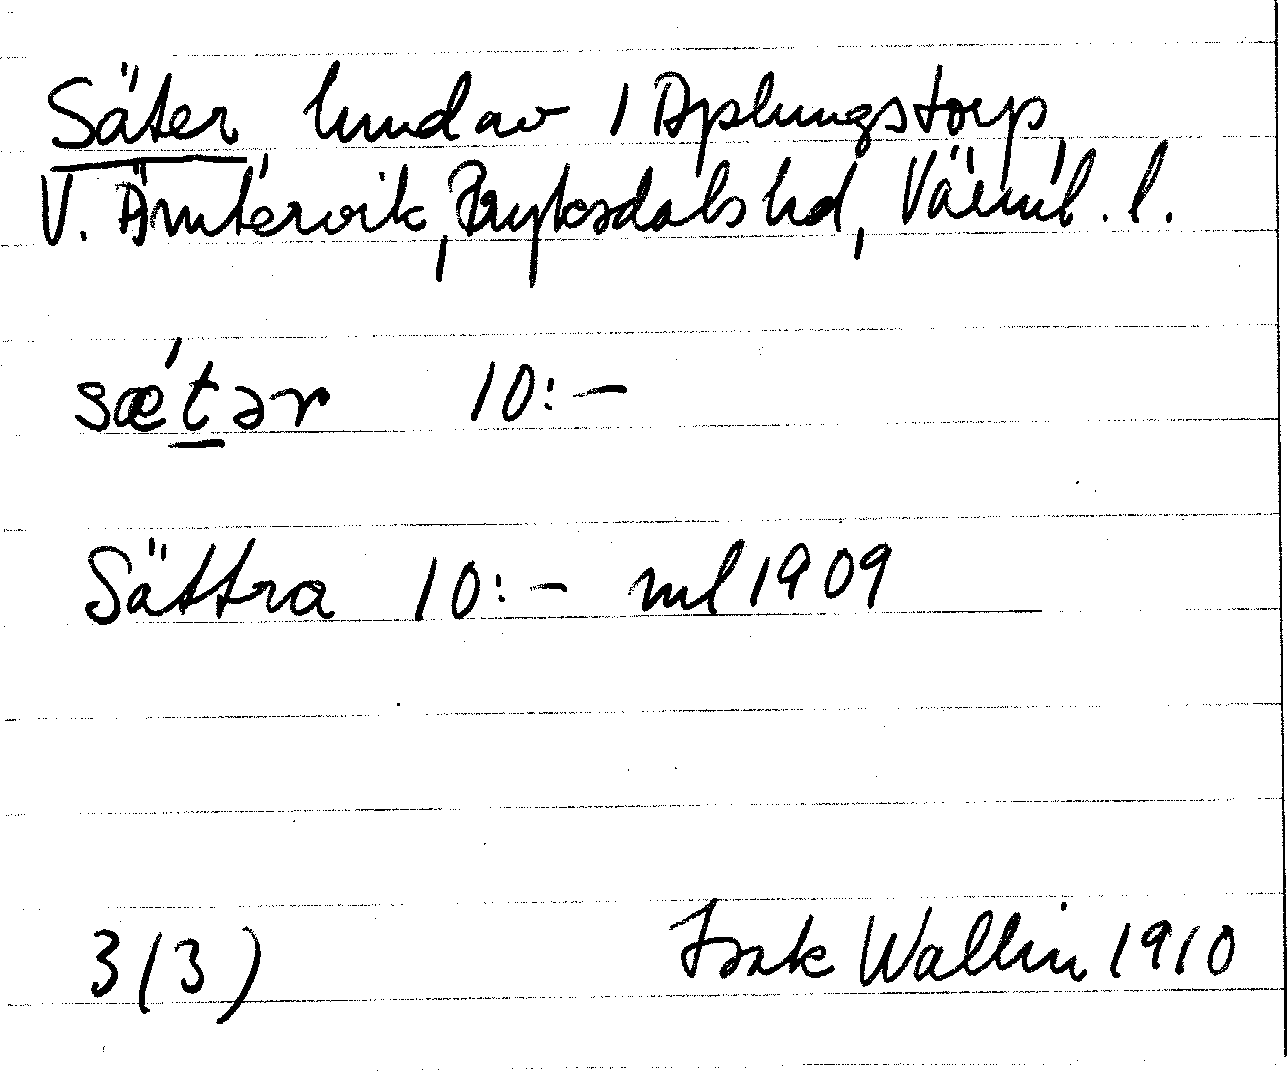 Säter hmd av 1 Aplungstorp
V. Ämtervik, Fryksdals hd, Värml. l.
sǽtər 10:-
Sättra 10:- ml 1909
3(3) Isak Wallin 1910